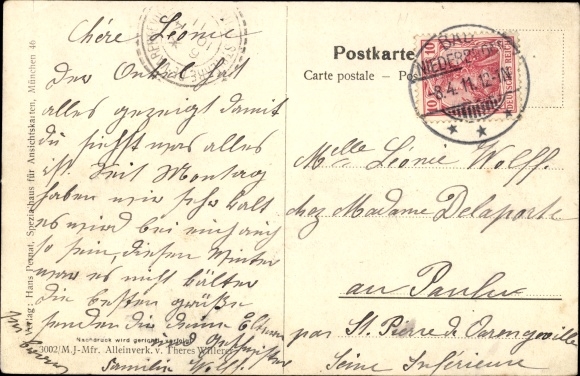 Chére Léonie
Der Onkel hat
alles gezeigt damit
du siehst was alles
ist. Seit Montag
haben wir sehr kalt
es wird bei euch auch
so sein, diesen Winter
war es nicht kälter
die besten grüße
senden dir deine Eltern
und Geschwister
Familie Wolff.
Nachdruck wird gerichtl. verfolgt
3002/M.J-Mfr. Alleinverk. v. Theres
Verlag: Hans Pernat, Spezialhaus für Ansichtskarten, München 46
Postkarte
Carte postale — Pos
10
10
DEUTSCHES REICH
BAD
NIEDERBRONN
8.4.11.12-1N
Melle Léonie Wolff.
chez Madame Delaporte
au Paulu
par St. Pierre de Varengeville
Seine Inférieure